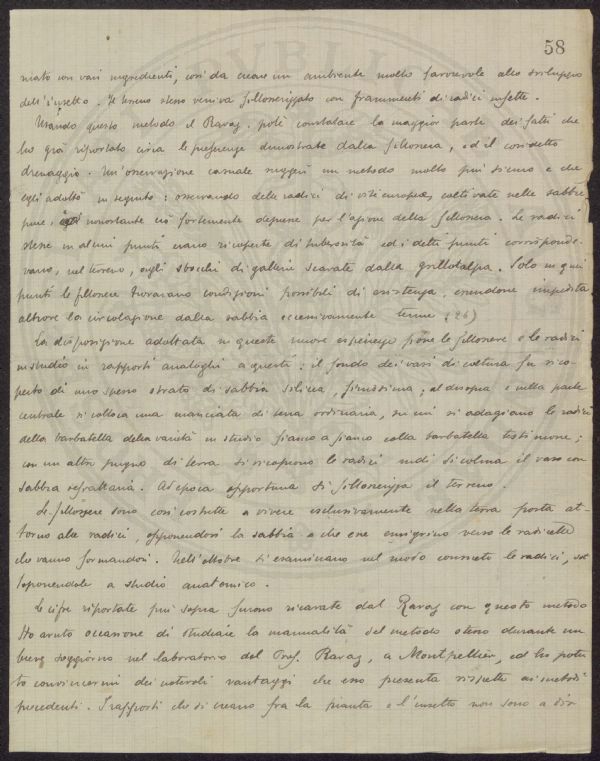 58
miato con vari ingredienti, così da creare un ambiente molto favorevole allo sviluppo
dell'insetto. Il terreno stesso veniva fillosserizzato con frammenti di radici infette.
Usando questo metodo il Ravaz potè constatare la maggior parte dei fatti che
ho già riportato circa le preferenze dimostrate dalla fillossera, ed il cosidetto
drenaggio. Un'osservazione casuale suggerì un metodo molto più sicuro e che
egli adottò in seguito: osservando delle radici di viti europee, coltivate nelle sabbie
pure, nonostante ciò fortemente deperite per l'azione della fillossera. Le radici
stesse in alcuni punti erano ricoperte di tuberosità ed i detti punti corrisponde-
vano, nel terreno, agli sbocchi di gallerie scavate dalla grillotalpa. Solo in quei
punti le fillossere trovavano condizioni possibili di esistenza, essendone impedita
altrove la circolazione dalla sabbia eccessivamente tenue (26)
La disposizione adottata in queste nuove esperienze pone le fillossere e le radici
in studio in rapporti analoghi a questi: il fondo dei vasi di coltura fu rico-
perto di uno spesso strato di sabbia silicea, finissima; al disopra e nella parte
centrale si colloca una manciata di terra ordinaria, su cui si adagiano le radici
della barbatella della varietà in studio fianco a fianco colla barbatella testimone;
con un altro pugno di terra si ricoprono le radici indi si colma il vaso con
sabbia refrattaria. Ad epoca opportuna si fillosserizza il terreno.
Le fillossere sono così costrette a vivere esclusivamente nella terra posta at-
torno alle radici, opponendosi la sabbia a che esse emigrino verso le radicelle
che vanno formandosi. Nell'ottobre si esaminano nel modo consueto le radici, sot-
toponendole a studio anatomico.
Le cifre riportate più sopra furono ricavate dal Ravaz con questo metodo
Ho avuto occasione di studiare la manualità del metodo stesso durante un
breve soggiorno nel laboratorio del Prof. Ravaz, a Montpellier, ed ho potu-
to convincermi dei notevoli vantaggi che esso presenta rispetto ai metodi
precedenti. I rapporti che si creano fra la pianta e l'insetto non sono a dir